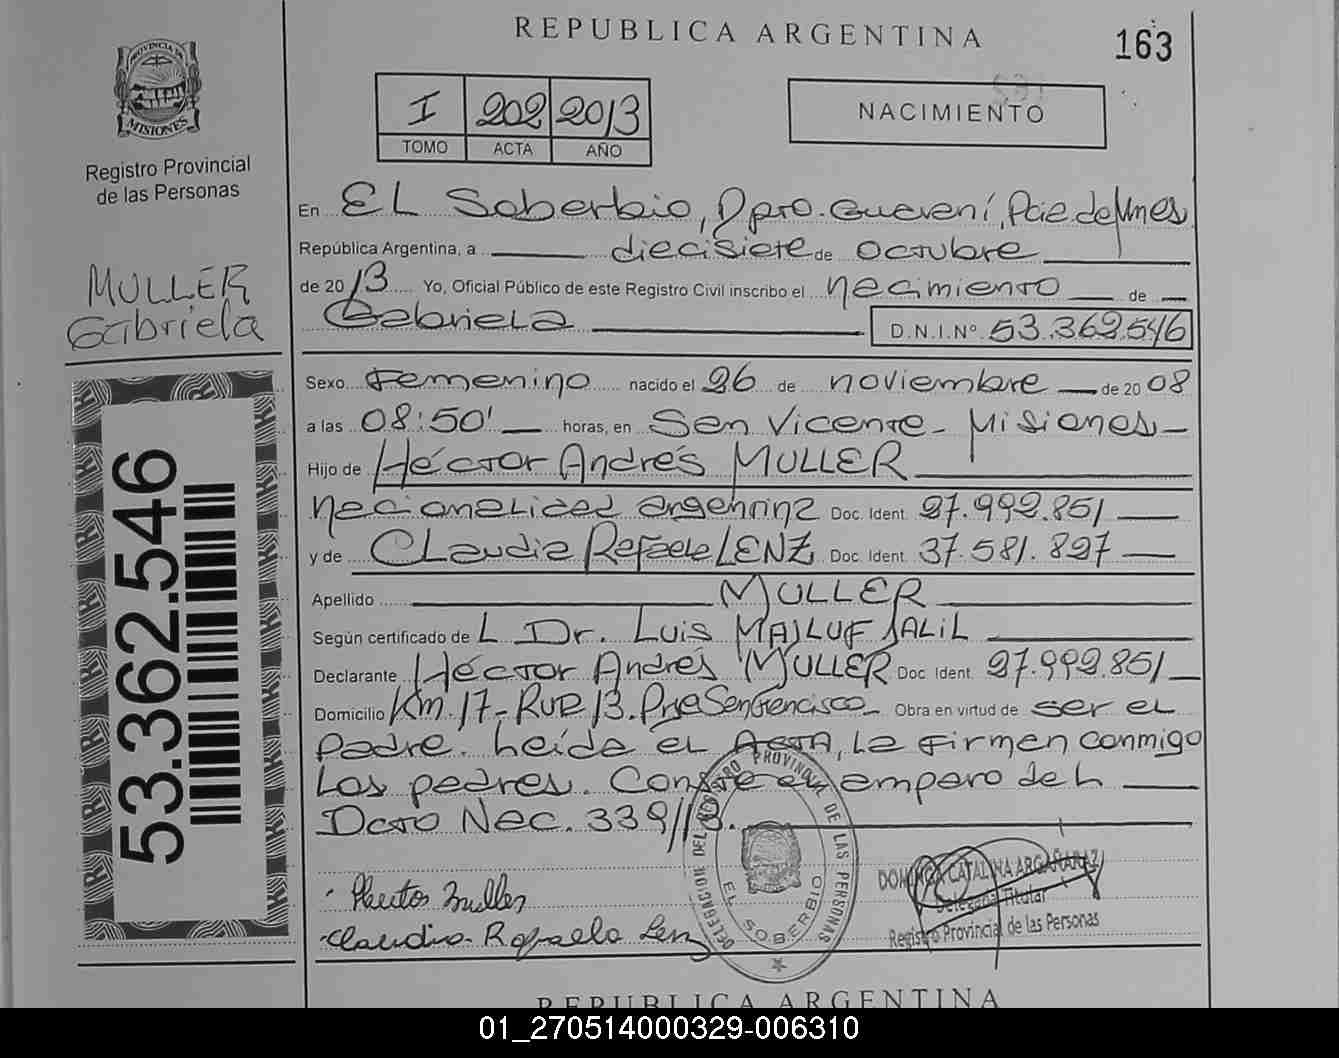 REPUBLICA ARGENTINA
163
PROVINCIA DE
MISIONES
Registro Provincial
de las Personas
I 202 2013
TOMO ACTA AÑO
NACIMIENTO
MULLER
Gabriela
53.362.546
En EL Soberbio, Dpto. Guaraní, Pcia de Mnes
República Argentina, a diecisiete de octubre
de 2013 Yo, Oficial Público de este Registro Civil inscribo el nacimiento de
Gabriela D.N.I.Nº 53.362.546
Sexo Femenino nacido el 26 de noviembre de 2008
a las 08:50' horas, en San Vicente - Misiones
Hijo de Héctor Andrés MULLER
nacionalidad argentina Doc. Ident. 27.992.851
y de Claudia Rafaela LENZ Doc. Ident. 37.581.827
Apellido MULLER
Según certificado de L Dr. Luis MAJLUF JALIL
Declarante Héctor Andrés MULLER Doc. Ident. 27.992.851
Domicilio Km. 17 - Ruta 13. Pje San Francisco Obra en virtud de ser el
padre. Leída el ACTA, la firman conmigo
los padres. Conste en amparo del
Dcto Nac. 339/13.
DELEGACION DEL REGISTRO PROVINCIAL DE LAS PERSONAS
EL SOBERBIO
Muller
Claudia Rafaela Lenz
DOMINGA CATALINA ARGAÑARAZ
Delegada Titular
Registro Provincial de las Personas
REPUBLICA ARGENTINA
01_270514000329-006310